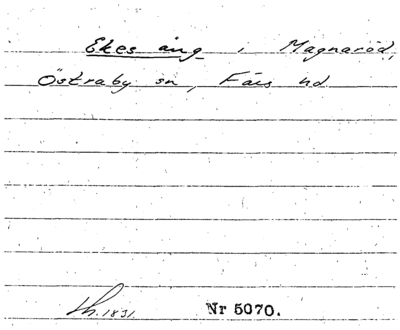 Ekes äng i Magnaröd,
Östraby sn, Färs hd
Lh. 1831. Nr 5070.